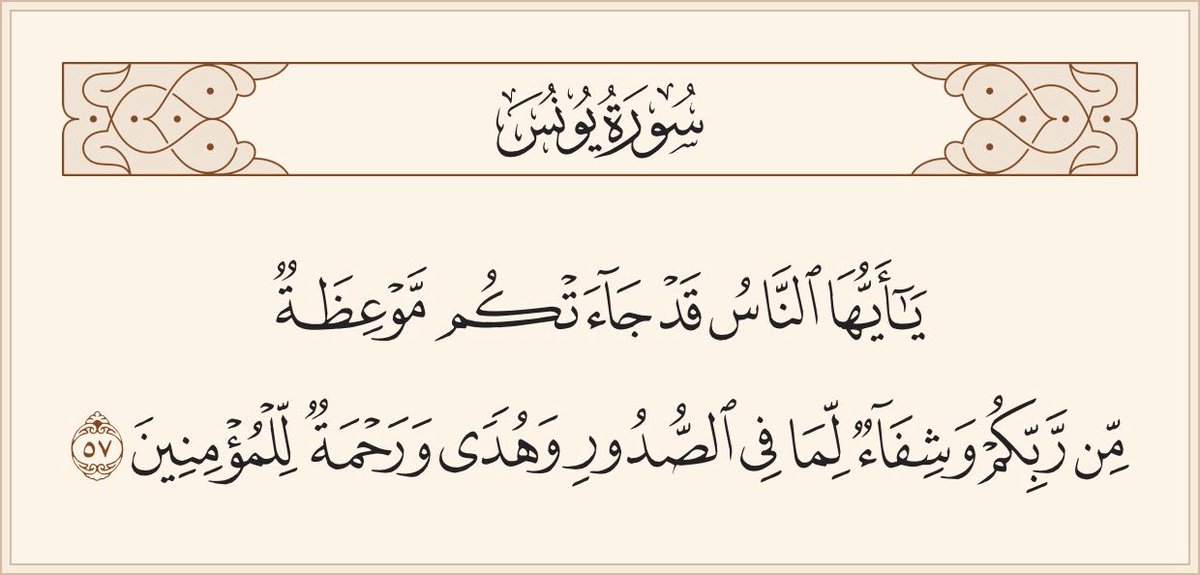 سُورَةُ يُونُسَ
يَـٰٓأَيُّهَا ٱلنَّاسُ قَدْ جَآءَتْكُم مَّوْعِظَةٌ
مِّن رَّبِّكُمْ وَشِفَآءٌ لِّمَا فِى ٱلصُّدُورِ وَهُدًى وَرَحْمَةٌ لِّلْمُؤْمِنِينَ ٥٧